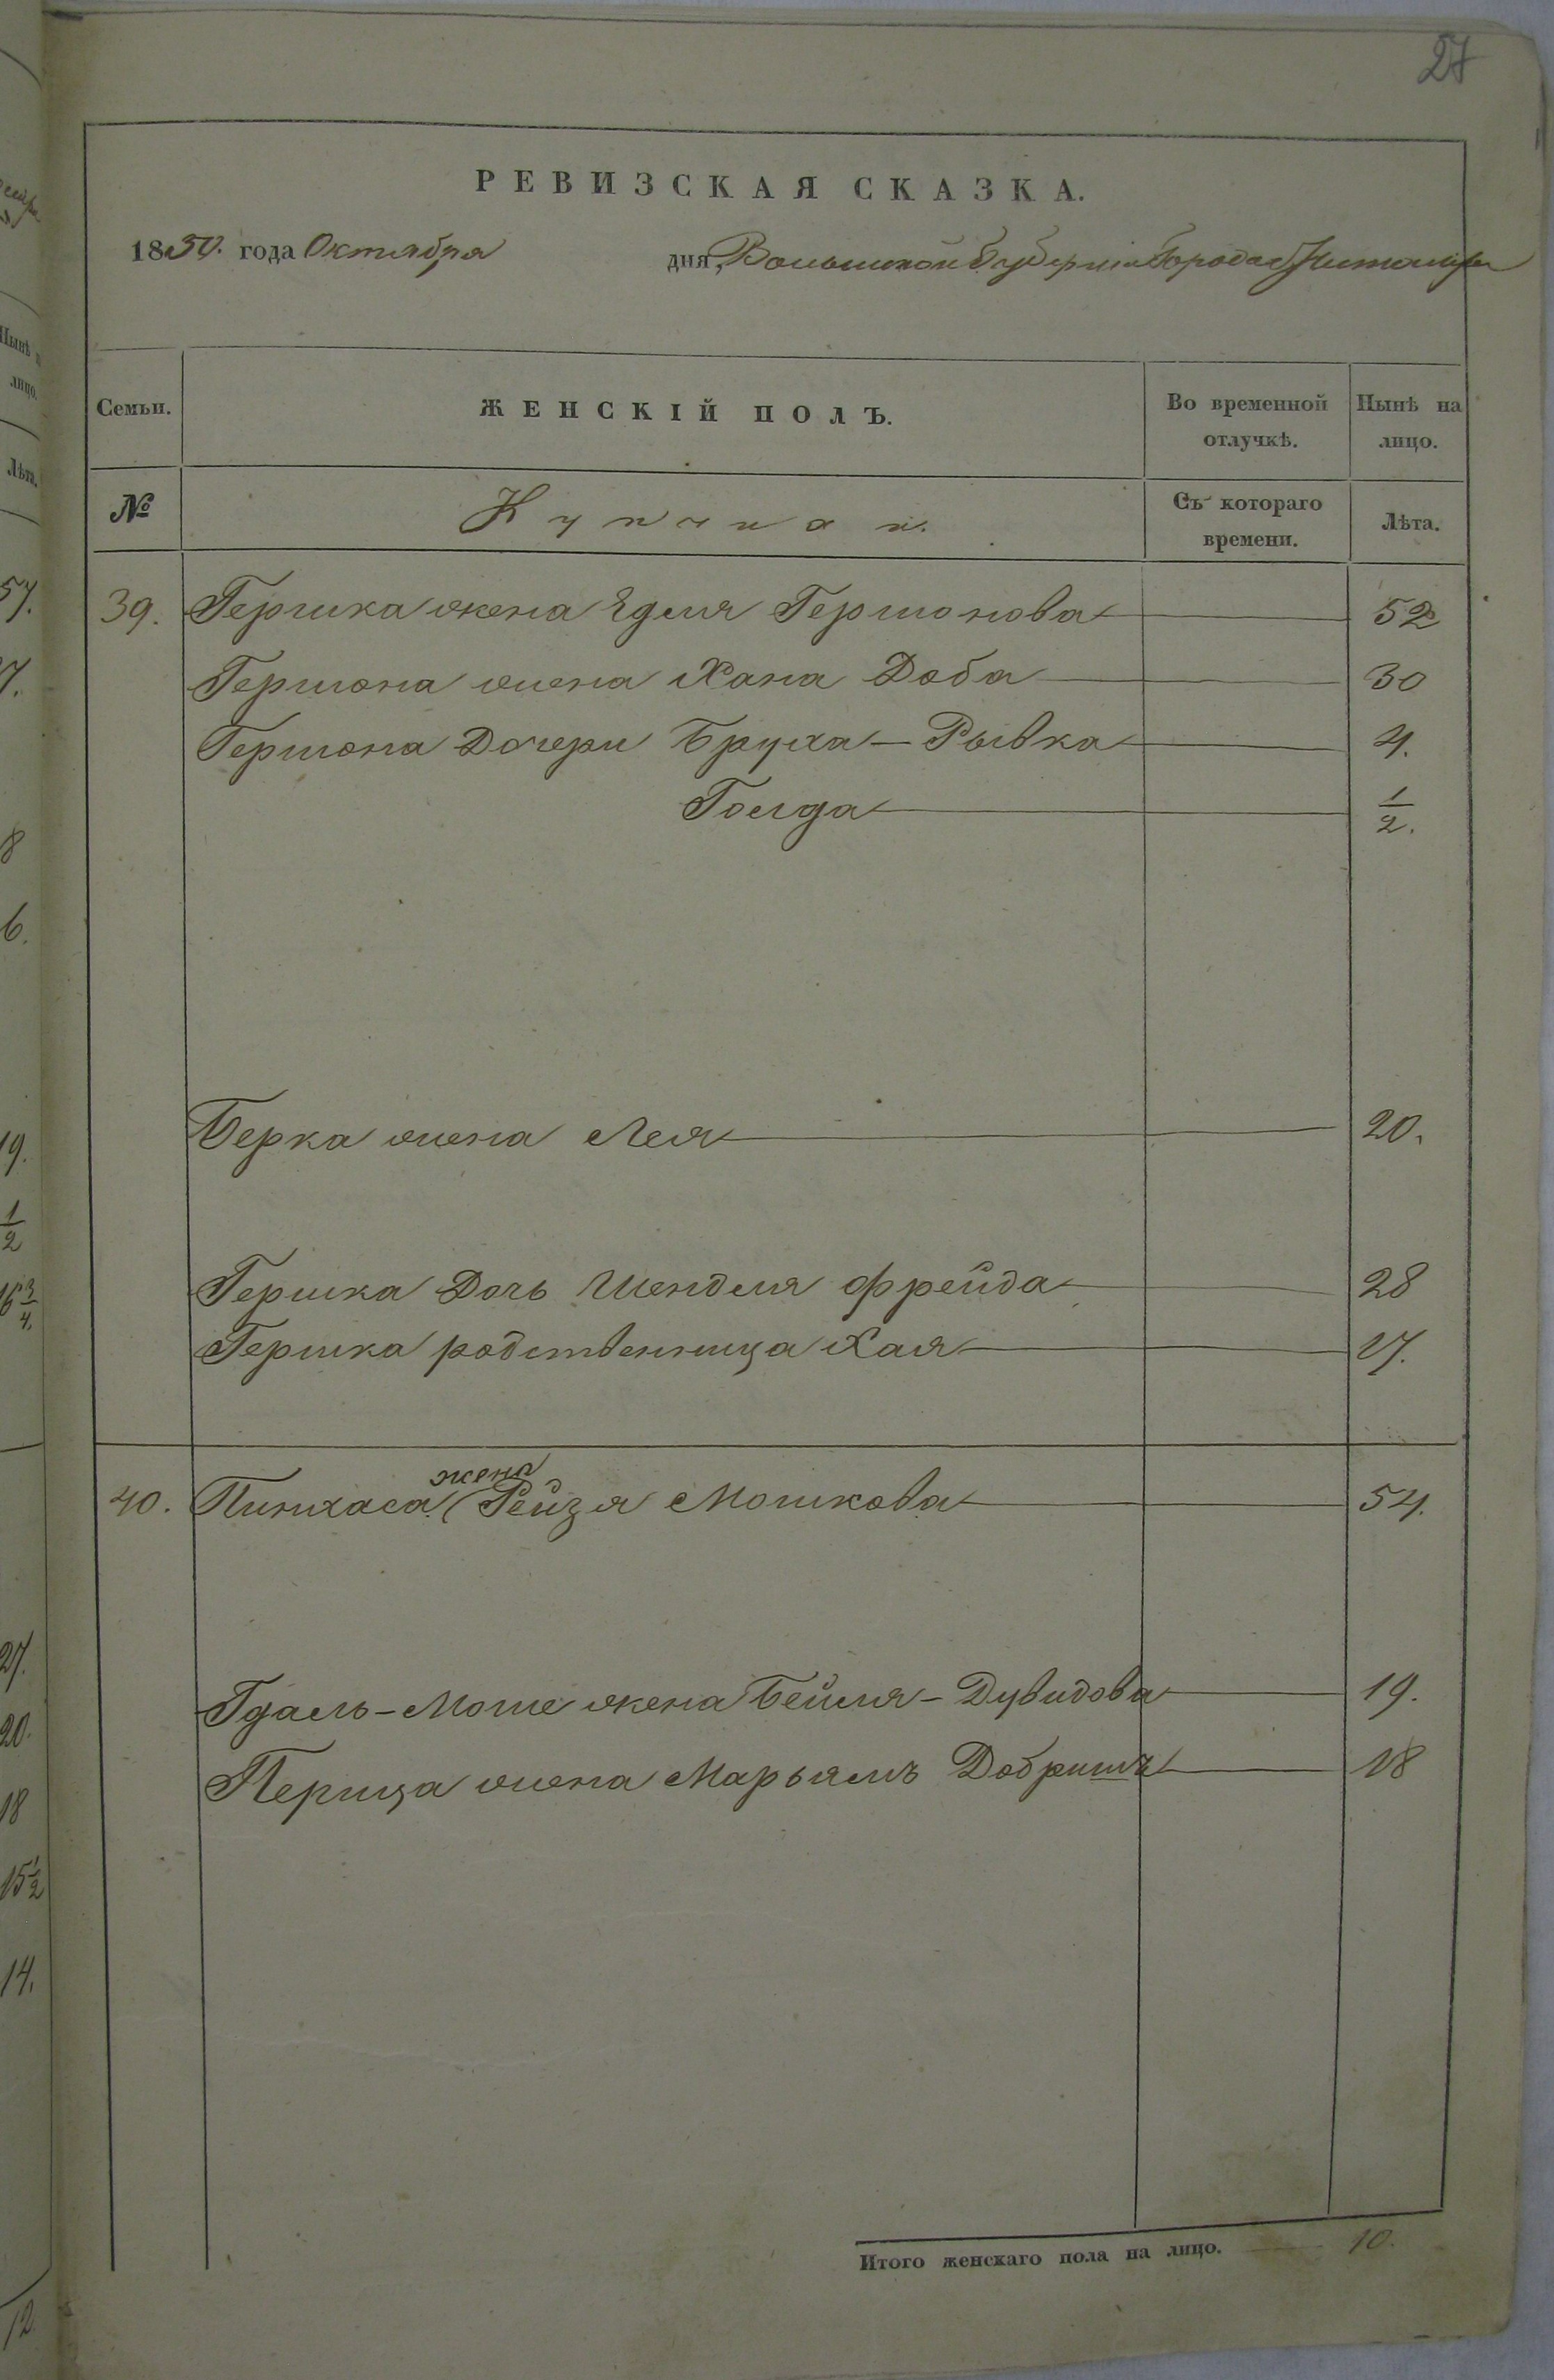 27
РЕВИЗСКАЯ СКАЗКА.
1850. года Октября дня, Волынской Губернiи Города Житомира
Семьи. ЖЕНСКІЙ ПОЛЪ. Во временной отлучкѣ. Нынѣ на лицо.
№ Съ котораго времени. Лѣта.
39. Гершка жена Эдля Гершонова 52
Гершона жена Хана Доба 30
Гершона Дочери Бруха-Рывка 4.
Голда 1/2.
Берка жена Лея 20.
Гершка Дочь Шендля Фрейда 28
Гершка родственница Хая 17.
жена
40. Пинхаса Рейзя Мошкова 54.
Гдаль-Моше жена Бейля-Дувидова 19.
Перица жена Марьямъ Добришъ 18
Итого женскаго пола на лицо. 10.
57.
7.
8
6.
19.
1/2
16 3/4.
27.
20.
18
15 1/2
14.
12
Нынѣ
лицо.
Лѣта.